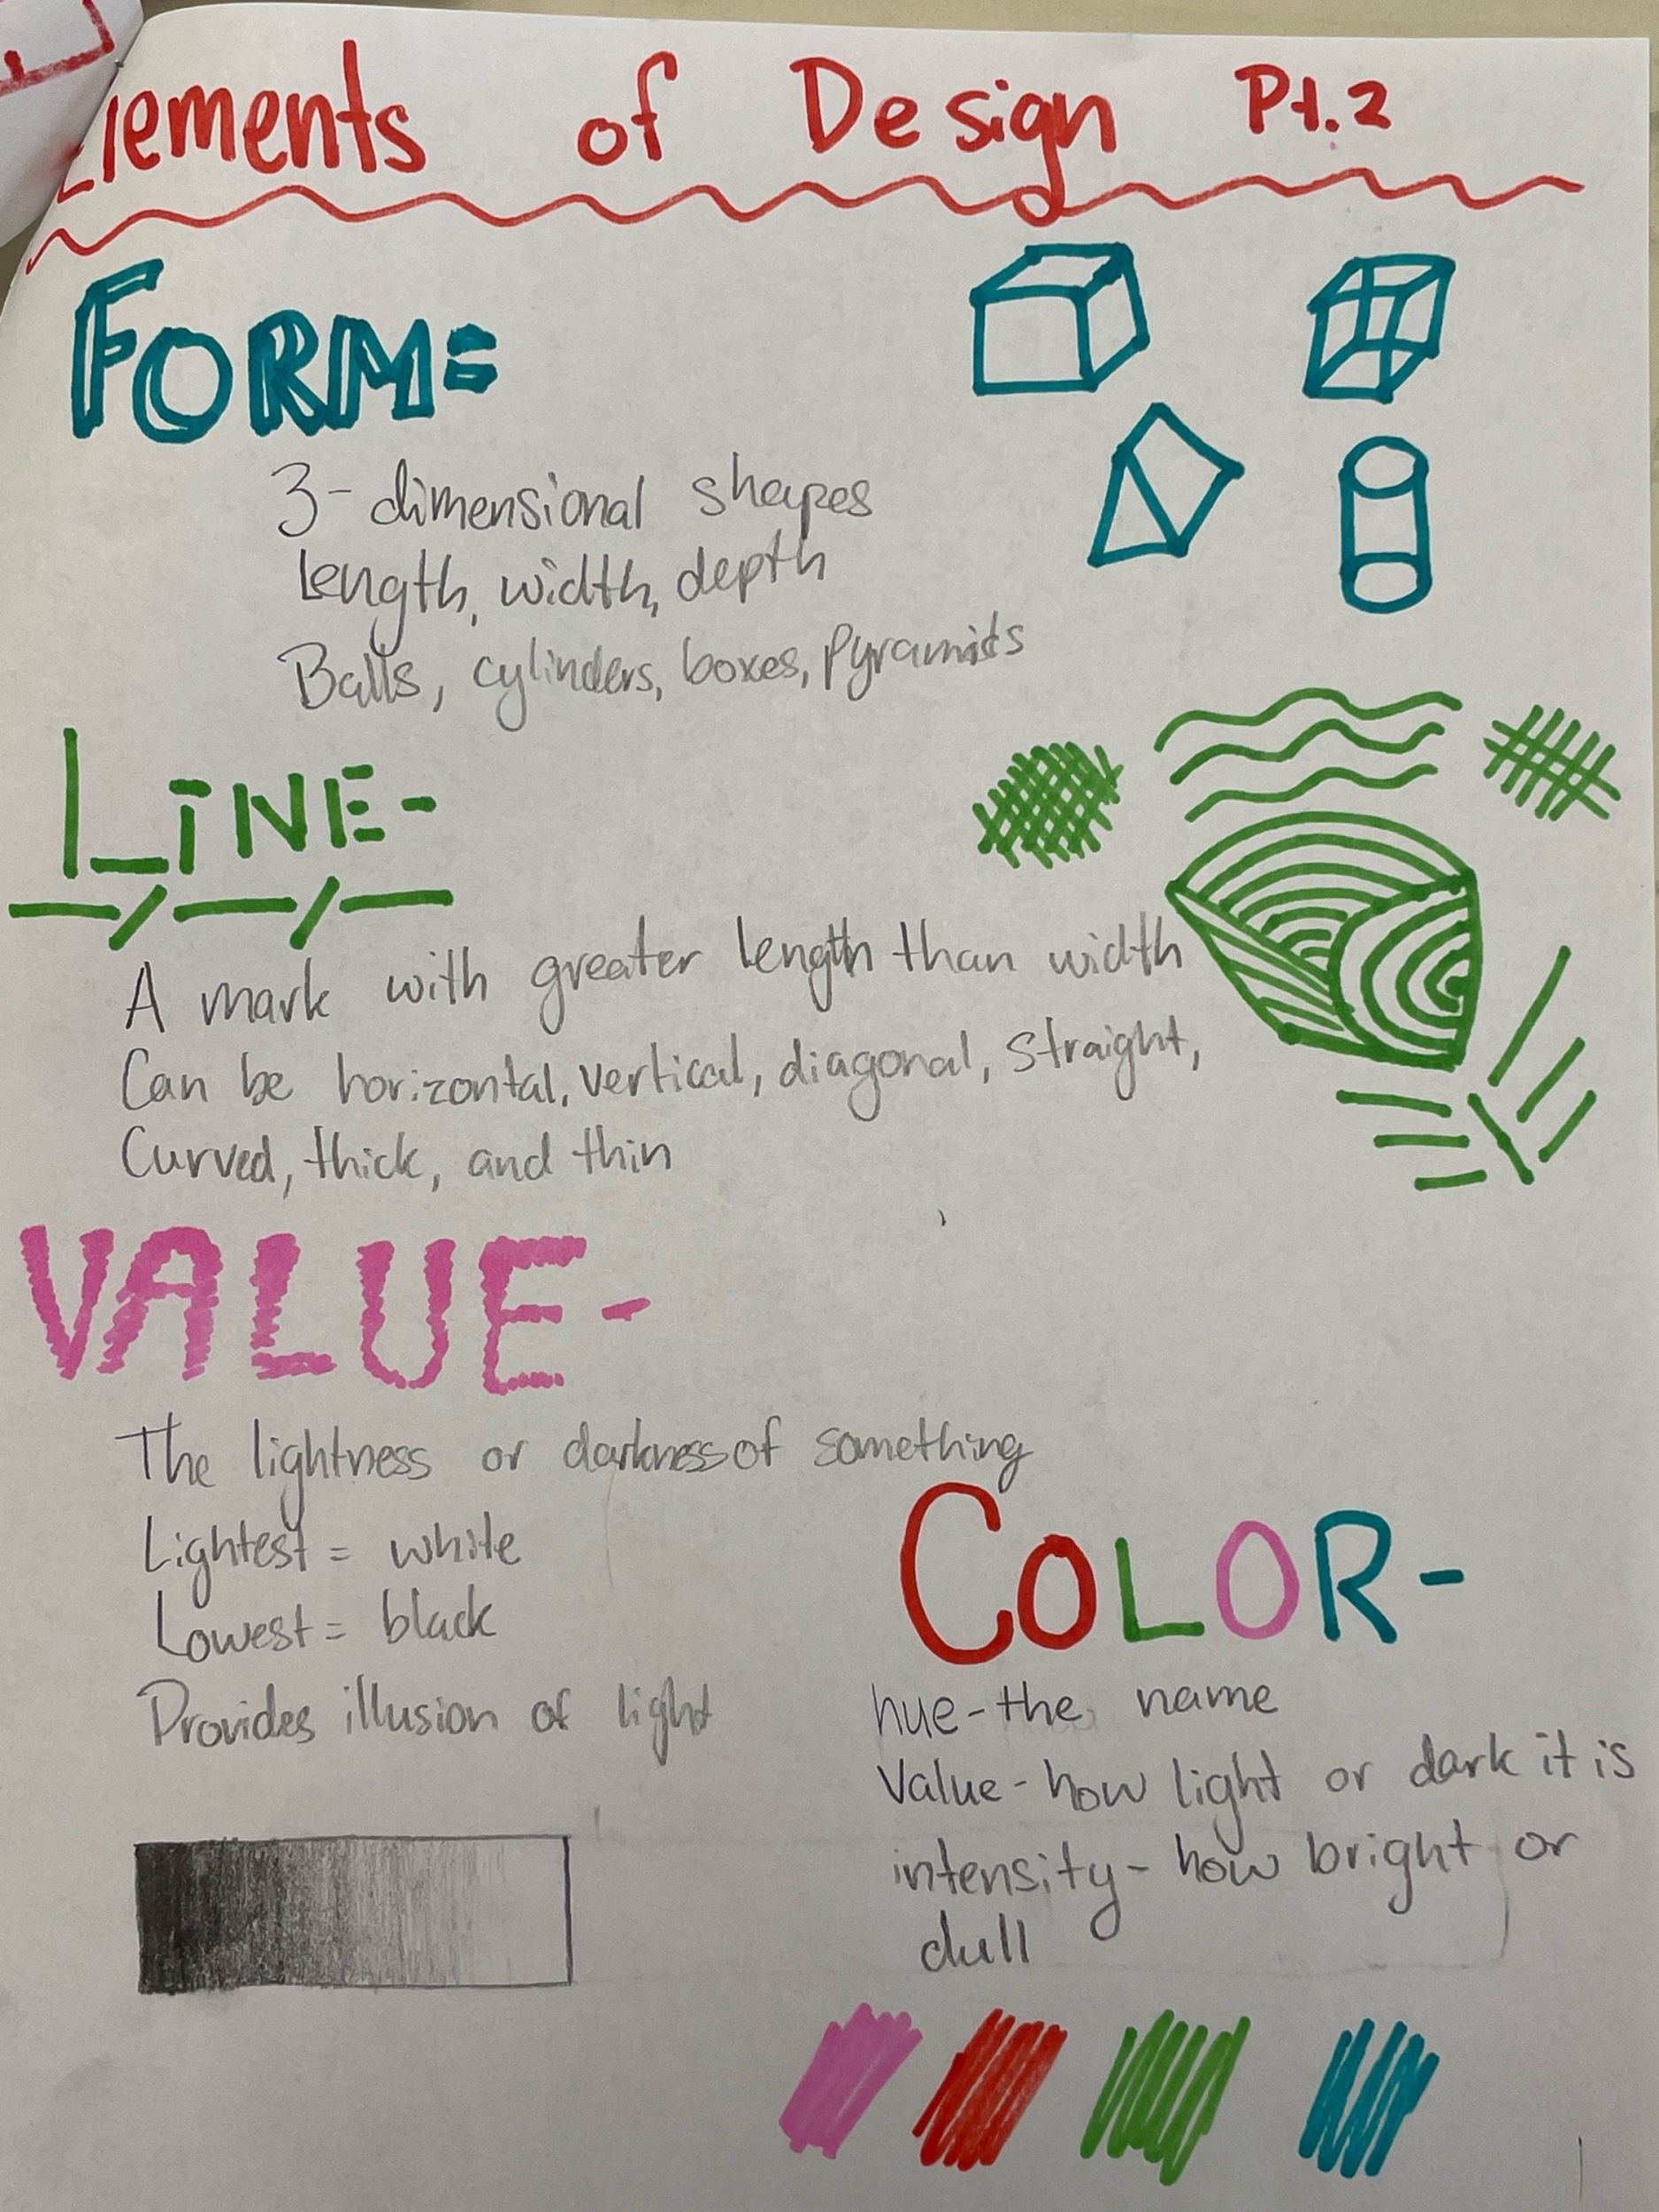 Elements of Design Pt.2
FORM=
3-dimensional shapes
Length, width, depth
Balls, cylinders, boxes, pyramids
LINE-
A mark with greater length than width
Can be horizontal, vertical, diagonal, straight,
Curved, thick, and thin
VALUE-
The lightness or darkness of something
Lightest = white
Lowest = black
Provides illusion of light
COLOR-
hue-the name
Value-how light or dark it is
intensity-how bright or
dull